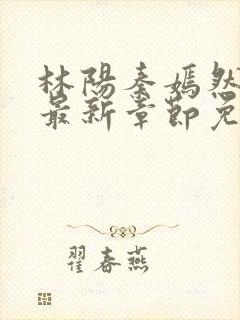 林陽秦嫣然
最新章節免
翟春燕